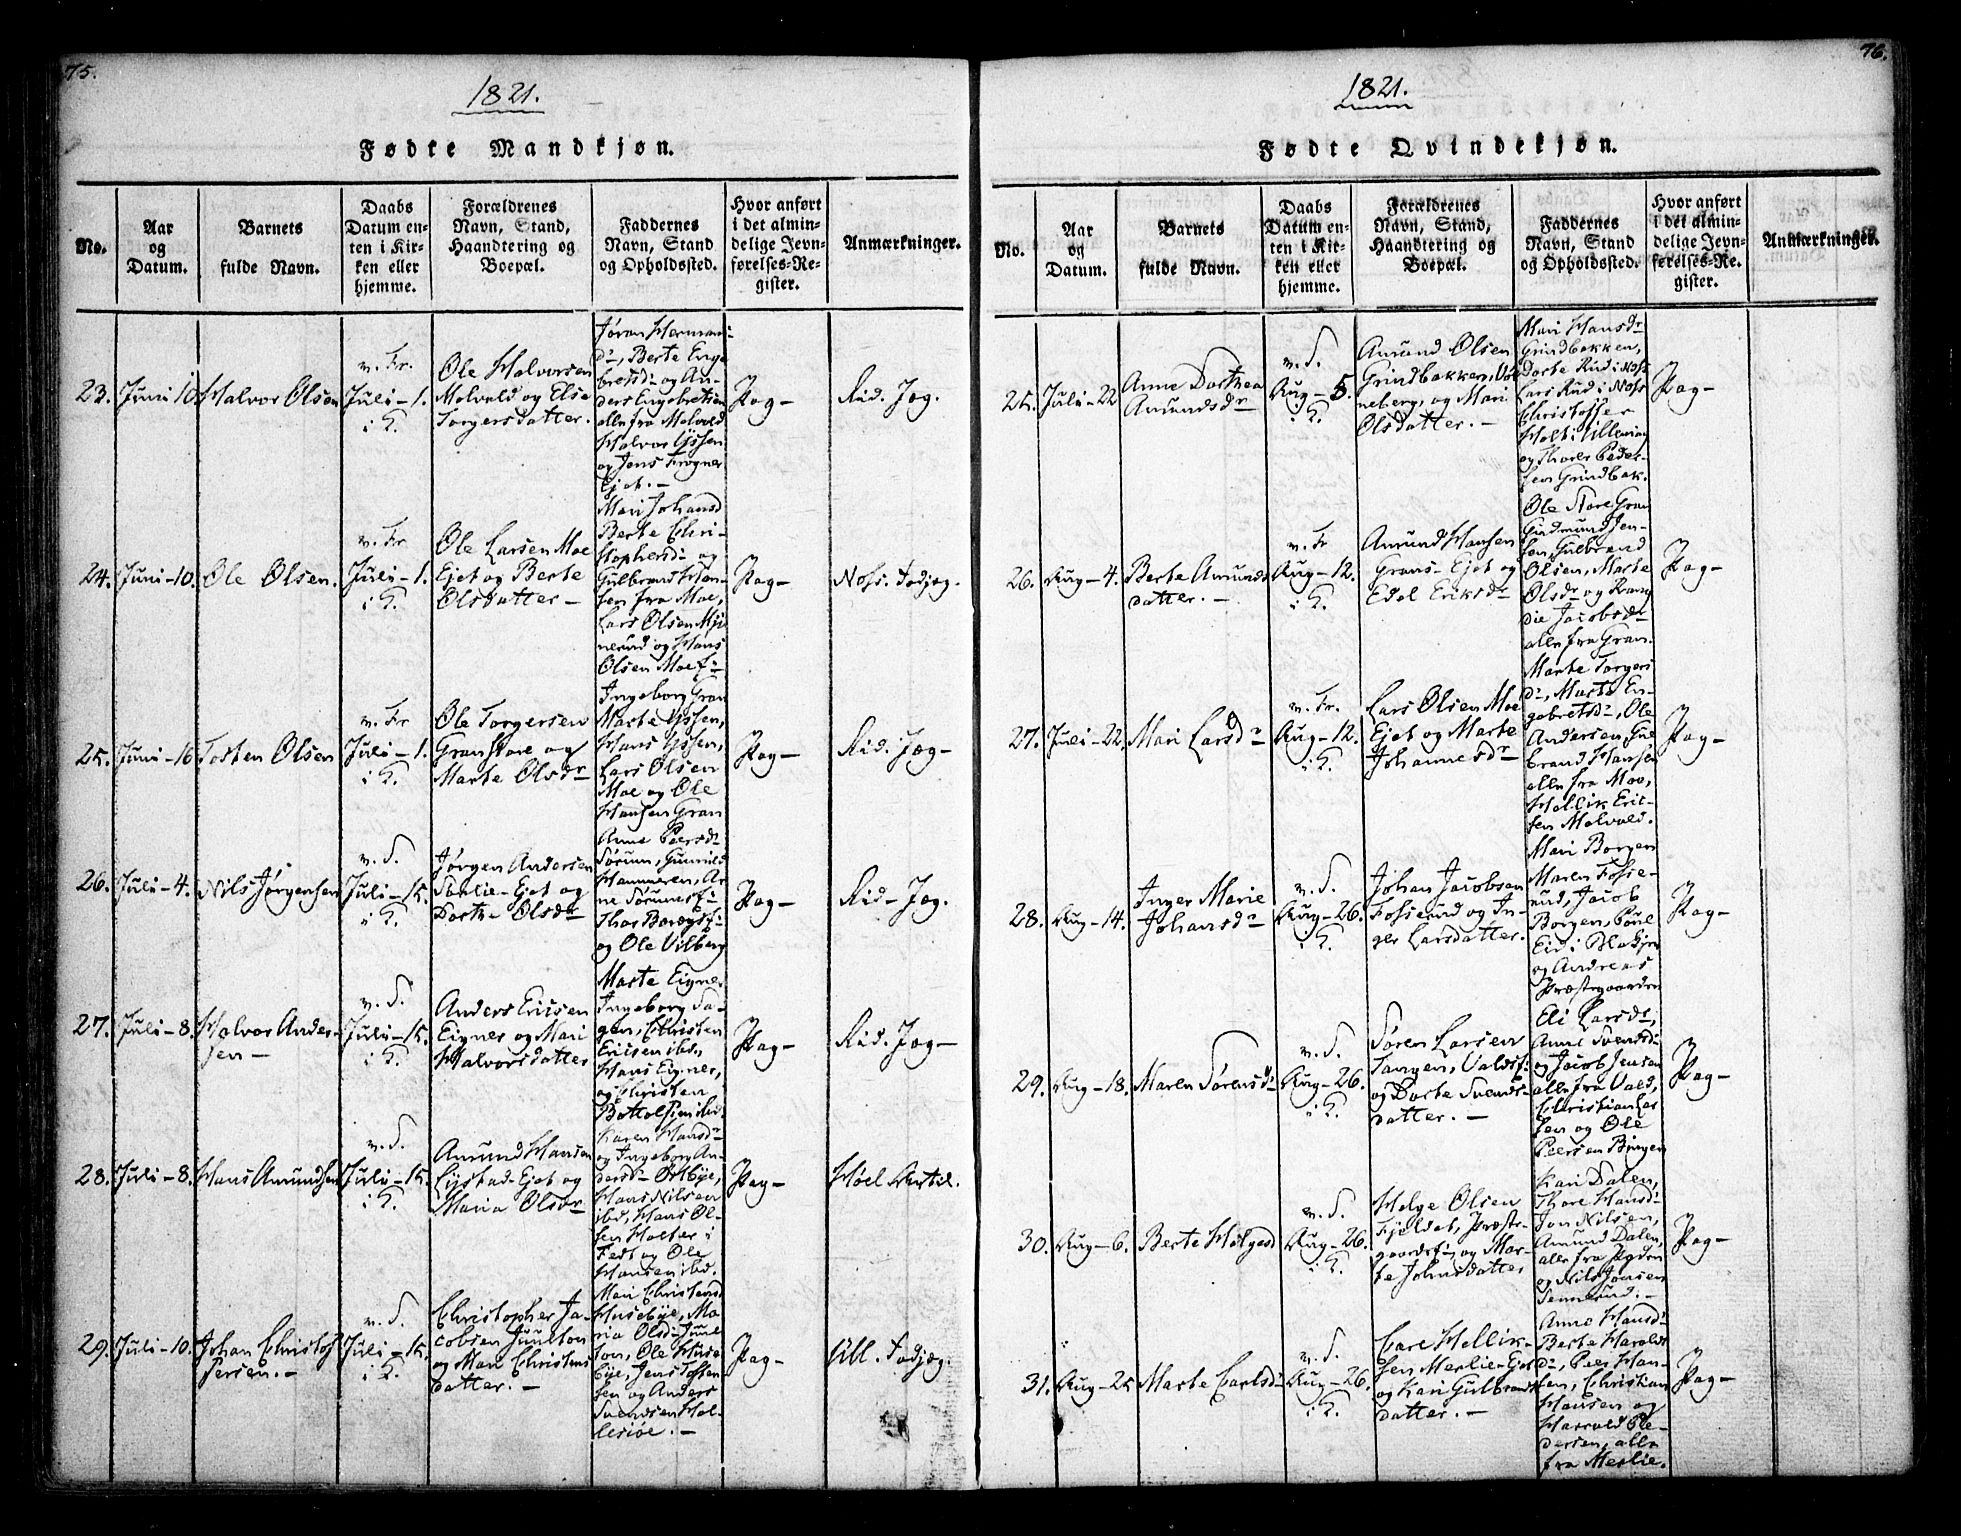 75.
1821.
Fødte Mandkjøn.
No.
Aar
og
Datum.
Barnets
fulde Navn.
Daabs
Datum en-
ten i Kir-
ken eller
hjemme.
Forældrenes
Navn, Stand,
Haandtering og
Boepæl.
Faddernes
Navn, Stand
og Opholdssted.
Hvor anført
i det almin-
delige Jevn-
førelses-Re-
gister.
Anmærkninger.
23.
Juni 10
Halvor Olsen
v. Fr.
Juli - 1.
i K.
Ole Halvorsen
Molvald og Else
Torgersdatter.
Jøran Herman-
dr, Berte Enge
bretsdr og An-
ders Engebretsen
alle fra Molvald
Halvor Ilssen
og Jens Frogner
Ejet. -
Pag -
Rid. Jæg.
24.
Juni - 10.
Ole Olsen.
v. Fr
Juli - 1.
i K.
Ole Larsen Moe
Ejet og Berte
Olsdatter -
Mari Johansd
Berte Chri-
stophersdr og
Gulbrand Han-
sen fra Moe,
Lars Olsen
og Hans
Olsen Moe
Pag -
Nofs. Fodjæg.
25.
Juni - 16
Tosten Olsen
v. Fr
Juli - 1.
i K.
Ole Torgersen
Gran store og
Marte Olsdr
Ingeborg Gran
Marte Ilssen,
Hans Ilssen,
Lars Olsen
Moe og Ole
Hansen Gran
Pag -
Rid. Jæg -
26.
Juli - 4.
Nils Jørgensen
v. S.
Juli - 15.
i K.
Jørgen Andersen
Sørlie - Ejet og
Dorthe Olsdr
Anne Peersdr
Sørum, Gunnild
Hammeren, Ar
ne
Thor
og Ole Vilberg
Pag -
Rid - Jæg.
27.
Juli - 8.
Halvor Ander-
sen -
v. S.
Juli - 15.
i K.
Anders Ericsen
Eigner og Mari
Halvorsdatter
Marte Eigner
Ingeborg Ha-
gen, Christen
Ericsen ibd,
Hans Eigner,
og Christen
Bottolfsen ibd.
Pag -
Rid. Jæg -
28.
Juli - 8.
Hans Amundsen
v. S.
Juli - 15.
i K.
Amund Hansen
Lystad - Ejet og
Maria Olsdr
Karen Hansdr
og Ingeborg An-
dersdr Østbye,
Hans Nilsen
ibd, Hans Ol-
sen Holter i
Fedt og Ole
Hansen ibd.
Pag -
Høel Artil.
29.
Juli - 10.
Johan Christof
Persen. -
v. S.
Juli - 15.
i K.
Christopher Ja-
cobsen Juulton
og Mari Christens
datter. -
Mari Christensd
Husebye, Ma
ria Olsdr Juul
ton, Ole Huse
bye, Jens Tosten
sen og Anders
Svendsen Hol-
lerioe. -
Pag -
Ull. Fodjæg.
76.
1821.
Fødte Qvindekjøn.
No.
Aar
og
Datum.
Barnets
fulde Navn.
Daabs
Datum en-
ten i Kir-
ken eller
hjemme.
Forældrenes
Navn, Stand,
Haandtering og
Boepæl.
Faddernes
Navn, Stand
og Opholdssted.
Hvor anført
i det almin-
delige Jevn-
førelses-Re-
gister.
Anmærkninger.
25.
Juli - 22
Anne Dorthea
Amundsdr
v. S.
Aug - 5.
i K.
Amund Olsen
Grindbakken,
neberg, og Mari
Olsdatter. -
Mari Hansdr
Grindbakken,
Dorte Rud i Nofs
Lars Rud i Nofs
Christoffer
Holt i Ullensag
og Thorer Peder
sen Grindbak.
Pag -
26.
Aug - 4.
Berte Amunds
datter. -
v. Fr
Aug - 12.
i K.
Amund Hansen
Grans - Ejet og
Edel Eriksdr
Ole Store Gran
Gudmund Jen-
sen, Gulbrand
Olsen, Marte
Olsdr og Ran
die Jacobsdr
alle fra Gran.
Pag -
27.
Juli - 22.
Mari Larsdr
v. Fr.
Aug - 12.
i K.
Lars Olsen Moe
Ejet og Marte
Johannesdr
Marte Torgers
dr, Marte En-
gebretsdr, Ole
Andersen, Gul
brand Hansen
alle fra Moe,
Hellik Eric-
sen Molvald.
Pag -
28.
Aug - 14.
Inger Marie
Johansdr
v. S.
Aug - 26.
i K.
Johan Jacobsen
Fosserud og In-
ger Larsdatter.
Mari Borgen
Maren Fosse-
rud, Jacob
Borgen, Poul
Eid i Blakjer
og Andreas
Præstegaarden
Pag -
29.
Aug - 18.
Maren Sørensdr
v. S.
Aug - 26.
i K.
Søren Larsen
Tangen,
og Dorte Svends-
datter. -
Eli Larsdr,
Anne Svendsdr
og Jacob Jensen
alle fra Vald,
Christian Lar
sen og Ole
Peersen Bjugen
Pag -
30.
Aug - 6.
Berte Helgesd
v. S.
Aug - 26.
i K.
Helge Olsen
Fjeldet, Præste-
og Mar-
te Johnsdatter
Kari Dalen,
Thore Hansdr
Jon Nilsen,
Amund Dalen,
alle fra
og Nils Jonsen
Sennerud. -
Pag -
31.
Aug - 25
Marte Carlsdr
v. S.
Aug - 26.
i K.
Carl Hellik-
sen Merlie - Ejet
og Kari Gulbrands
datter. -
Anne Hansdr
Berte Harolds
dr, Peer Han-
sen, Christian
Hansen og
Harrald Pe-
dersen, alle
fra Merlie.
Pag -